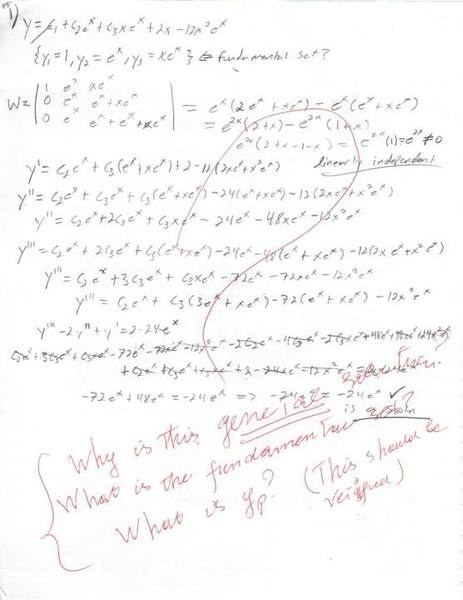 1) y = c₁ + c₂eˣ + c₃xeˣ + 2x - 12x²eˣ
{y₁=1, y₂=eˣ, y₃=xeˣ} ← fundamental set?
W = | 1 eˣ xeˣ | = eˣ(2eˣ + xeˣ) - eˣ(eˣ + xeˣ)
| 0 eˣ eˣ+xeˣ | = e²ˣ(2+x) - e²ˣ(1+x)
| 0 eˣ eˣ+eˣ+xeˣ | e²ˣ(2+x-1-x) = e²ˣ(1)=e²ˣ≠0
linearly independent
y' = c₂eˣ + c₃(eˣ+xeˣ)+2-12(2xeˣ+x²eˣ)
y'' = c₂eˣ + c₃eˣ + c₃(eˣ+xeˣ) - 24(eˣ+xeˣ) - 12(2xeˣ+x²eˣ)
y'' = c₂eˣ+2c₃eˣ + c₃xeˣ - 24eˣ - 48xeˣ - 12x²eˣ
y''' = c₂eˣ + 2c₃eˣ + c₃(eˣ+xeˣ) - 24eˣ - 48(eˣ+xeˣ) - 12(2xeˣ+x²eˣ)
y''' = c₂eˣ + 3c₃eˣ + c₃xeˣ - 72eˣ - 72xeˣ - 12x²eˣ
y''' = c₂eˣ + c₃(3eˣ + xeˣ) - 72(eˣ + xeˣ) - 12x²eˣ
y''' - 2y'' + y' = 2 - 24eˣ
-72eˣ + 48eˣ = -24eˣ => -24eˣ = -24eˣ ✓
is a soln
Why is this general solution?
What is the fundamental set?
What is yp? (This should be
verified)